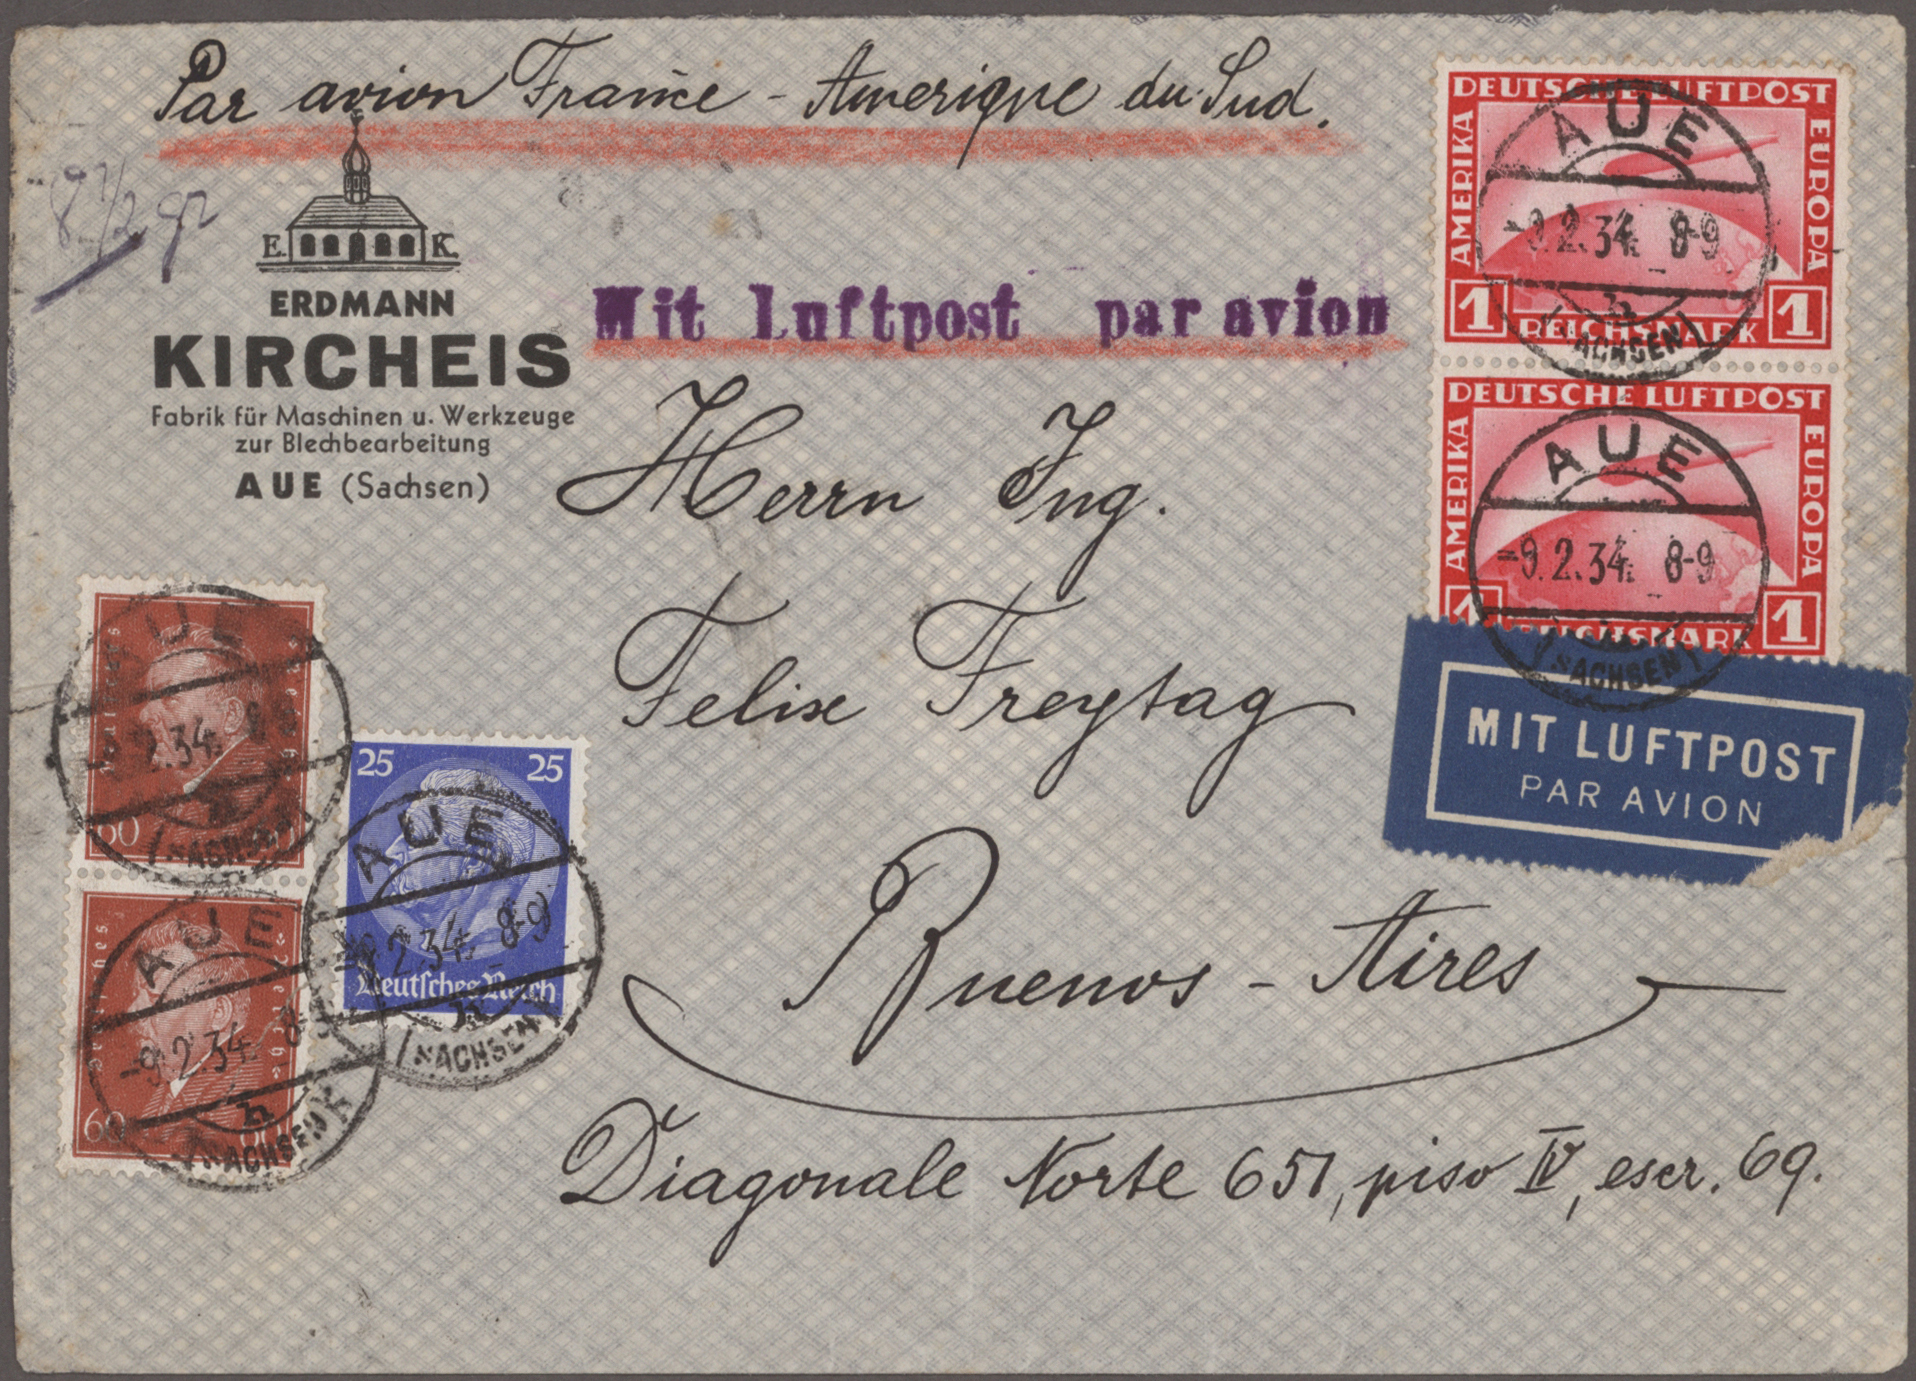 Par avion France - Amerique du Sud.
8 1/2 gr
E. K.
ERDMANN
KIRCHEIS
Fabrik für Maschinen u. Werkzeuge
zur Blechbearbeitung
AUE (Sachsen)
Mit Luftpost par avion
DEUTSCHE LUFTPOST
AMERIKA
EUROPA
1 REICHSMARK 1
AUE
-9.2.34. 8-9
h
(SACHSEN)
DEUTSCHE LUFTPOST
AMERIKA
EUROPA
1 REICHSMARK 1
AUE
-9.2.34. 8-9
(SACHSEN)
MIT LUFTPOST
PAR AVION
Herrn Ing.
Felix Freytag
Buenos-Aires
Diagonale Norte 651, piso IV, escr. 69.
60
AUE
2.34.
(SACHSEN)
25 25
Deutsches Reich
AUE
-9.2.34. 8-9
(SACHSEN)
60
AUE
-9.2.34. 8
h
(SACHSEN)